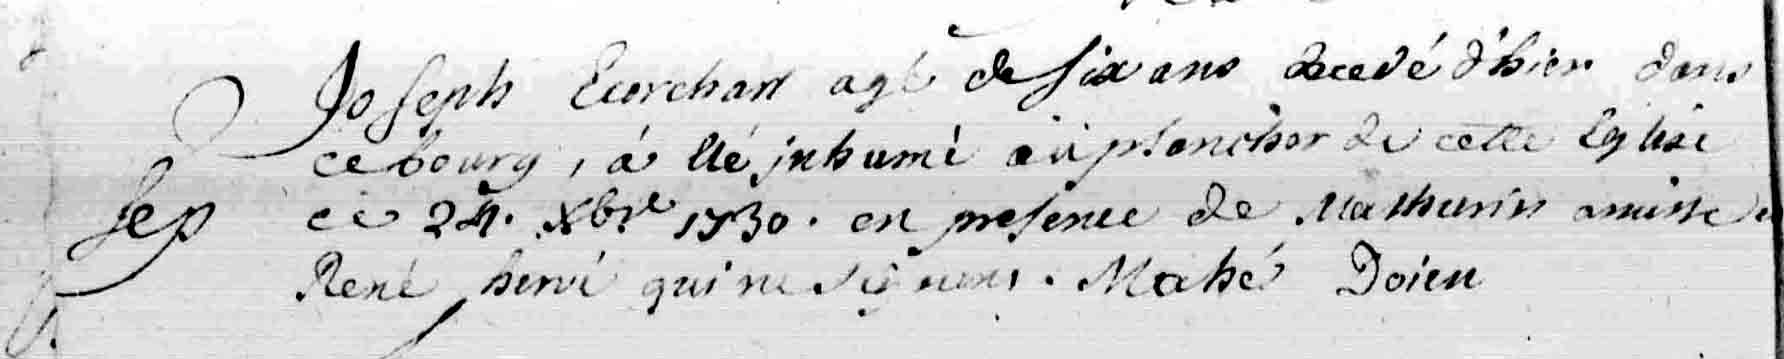 Joseph Ecorchart agé de six ans decedé d'hier dans
ce bourg, á été jnhumé au plancher de cette Eglise
Sep
ce 24. Xbre 1730. en presence de Mathurin
René hervé qui ne signent. Mahé Doien